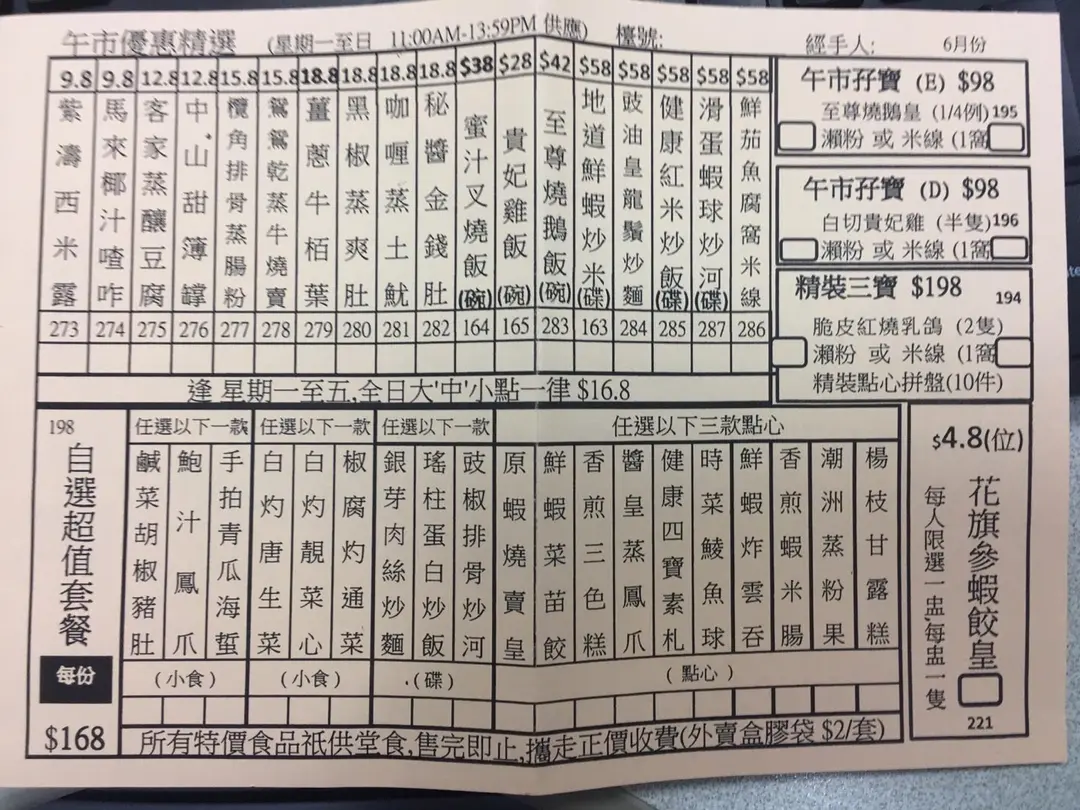 午市優惠精選 (星期一至日 11:00AM-13:59PM 供應) 檯號: 經手人: 6月份
9.8 紫濤西米露 273
9.8 馬來椰汁喳咋 274
12.8 客家蒸釀豆腐 275
12.8 中山甜簿罉 276
15.8 欖角排骨蒸腸粉 277
15.8 鴛鴦乾蒸牛燒賣 278
18.8 薑蔥牛栢葉 279
18.8 黑椒蒸爽肚 280
18.8 咖喱蒸土魷 281
18.8 秘醬金錢肚 282
$38 蜜汁叉燒飯(碗) 164
$28 貴妃雞飯(碗) 165
$42 至尊燒鵝飯(碗) 283
$58 地道鮮蝦炒米(碟) 163
$58 豉油皇龍鬚炒麵 284
$58 健康紅米炒飯(碟) 285
$58 滑蛋蝦球炒河(碟) 287
$58 鮮茄魚腐窩米線 286
逢 星期一至五,全日大'中'小點一律 $16.8
午市孖寶 (E) $98
至尊燒鵝皇 (1/4例) 195
瀨粉 或 米線 (1窩
午市孖寶 (D) $98
白切貴妃雞 (半隻) 196
瀨粉 或 米線 (1窩
精裝三寶 $198 194
脆皮紅燒乳鴿 (2隻)
瀨粉 或 米線 (1窩
精裝點心拼盤(10件)
198
自選超值套餐
每份
$168
任選以下一款
鹹菜胡椒豬肚
鮑汁鳳爪
手拍青瓜海蜇
(小食)
任選以下一款
白灼唐生菜
白灼靚菜心
椒腐灼通菜
(小食)
任選以下一款
銀芽肉絲炒麵
瑤柱蛋白炒飯
豉椒排骨炒河
(碟)
任選以下三款點心
原蝦燒賣皇
鮮蝦菜苗餃
香煎三色糕
醬皇蒸鳳爪
健康四寶素札
時菜鯪魚球
鮮蝦炸雲吞
香煎蝦米腸
潮洲蒸粉果
楊枝甘露糕
(點心)
所有特價食品祇供堂食,售完即止,攜走正價收費(外賣盒膠袋 $2/套)
$4.8(位)
花旗參蝦餃皇
每人限選一盅,每盅一隻
221